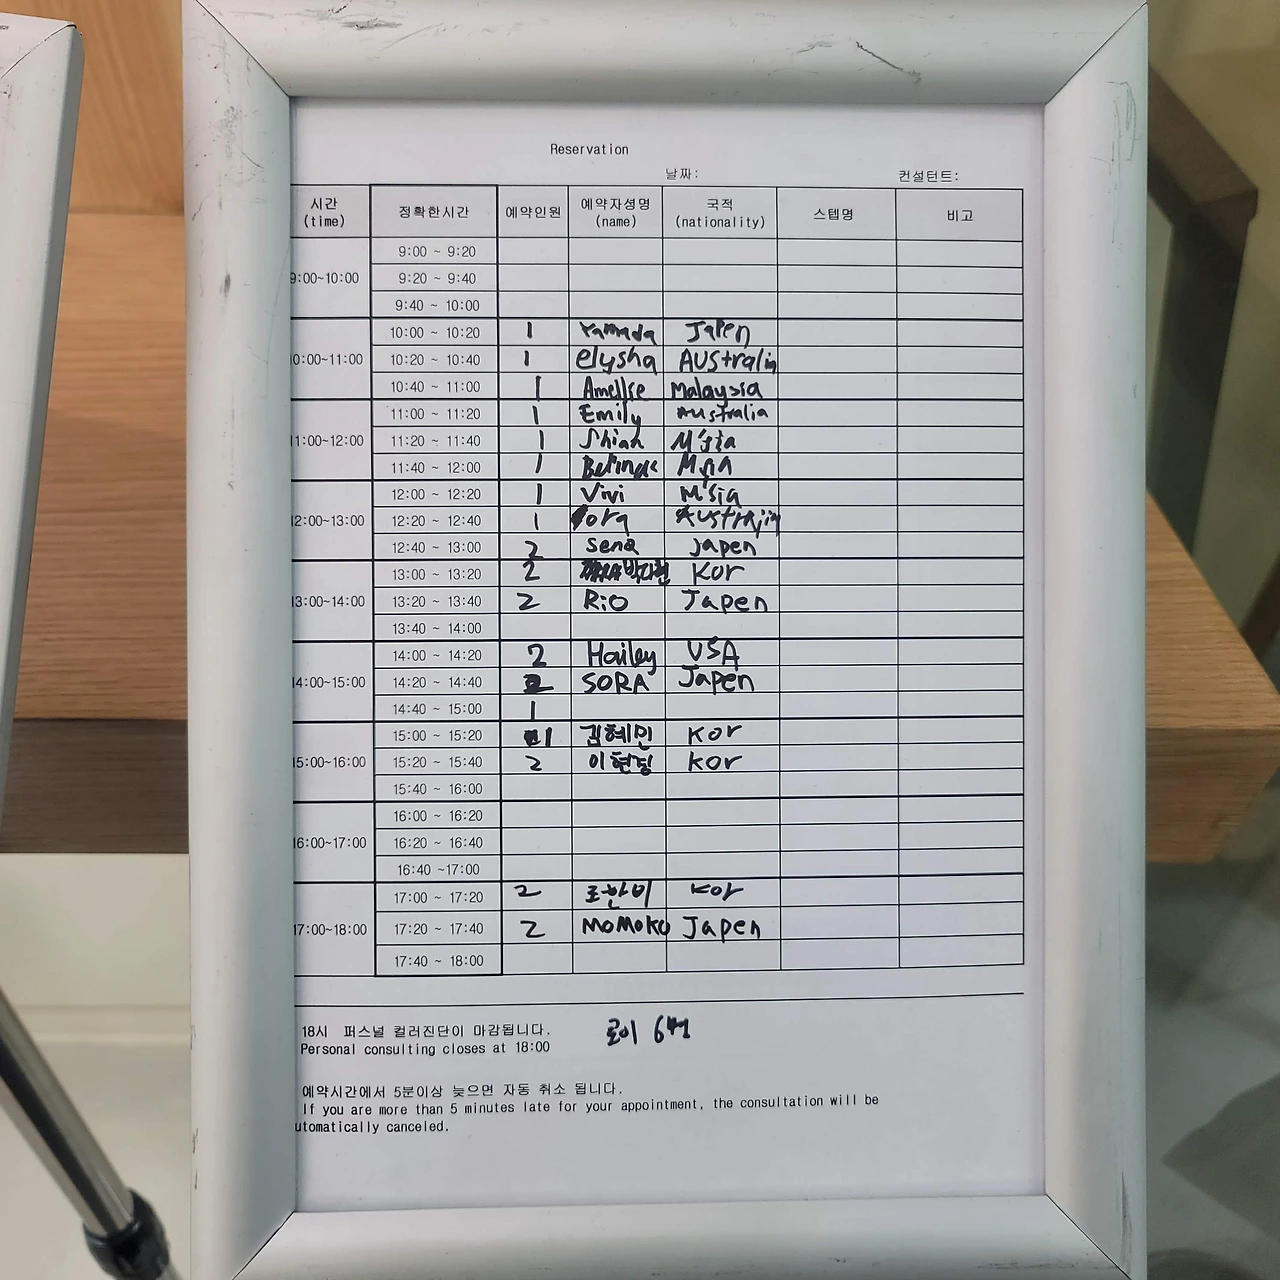 Reservation
날짜: 컨설턴트:
시간 (time) 정확한시간 예약인원 예약자성명 (name) 국적 (nationality) 스텝명 비고
9:00~10:00
9:00 ~ 9:20
9:20 ~ 9:40
9:40 ~ 10:00
0:00~11:00
10:00 ~ 10:20 1 Yamada Japen
10:20 ~ 10:40 1 elysha AUStralia
10:40 ~ 11:00 1 Malaysia
11:00~12:00
11:00 ~ 11:20 1 Emily Australia
11:20 ~ 11:40 1 Shian M'sia
11:40 ~ 12:00 1
12:00~13:00
12:00 ~ 12:20 1 Vivi M'sia
12:20 ~ 12:40 1
12:40 ~ 13:00 2 Sena Japen
13:00~14:00
13:00 ~ 13:20 2 Kor
13:20 ~ 13:40 2 RiO Japen
13:40 ~ 14:00
14:00~15:00
14:00 ~ 14:20 2 Hailey USA
14:20 ~ 14:40 2 SORA Japen
14:40 ~ 15:00 1
15:00~16:00
15:00 ~ 15:20 1 김혜민 Kor
15:20 ~ 15:40 2 Kor
15:40 ~ 16:00
16:00~17:00
16:00 ~ 16:20
16:20 ~ 16:40
16:40 ~17:00
17:00~18:00
17:00 ~ 17:20 2 Kor
17:20 ~ 17:40 2 MOMOKO Japen
17:40 ~ 18:00
18시 퍼스널 컬러진단이 마감됩니다.
Personal consulting closes at 18:00
예약시간에서 5분이상 늦으면 자동 취소 됩니다.
If you are more than 5 minutes late for your appointment, the consultation will be
utomatically canceled.